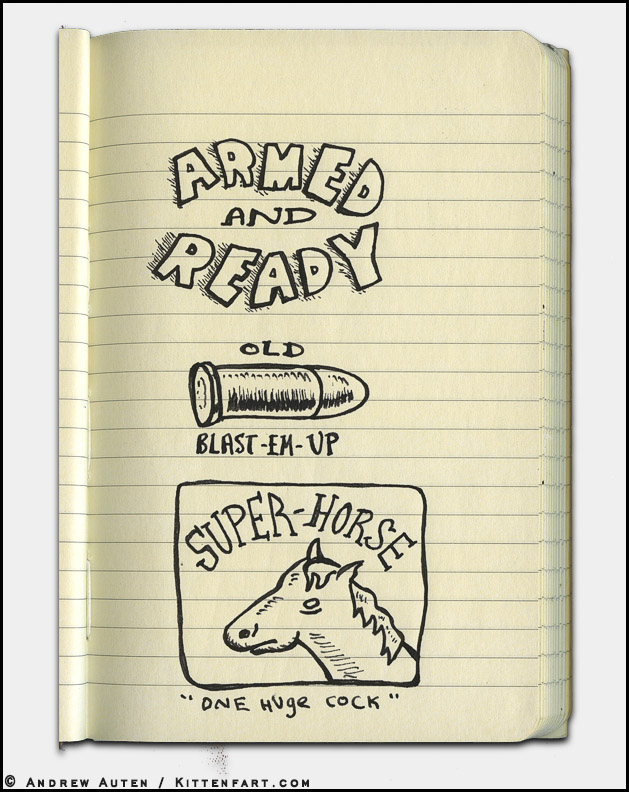 ARMED
AND
READY
OLD
BLAST-EM-UP
SUPER-HORSE
"ONE HUge COCK"
© ANDREW AUTEN / KITTENFART.COM